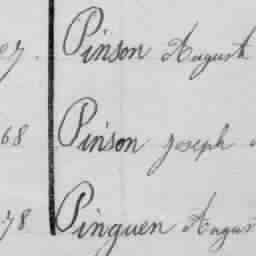 Pinson August
68 Pinson Joseph
78 Pinguen Augus